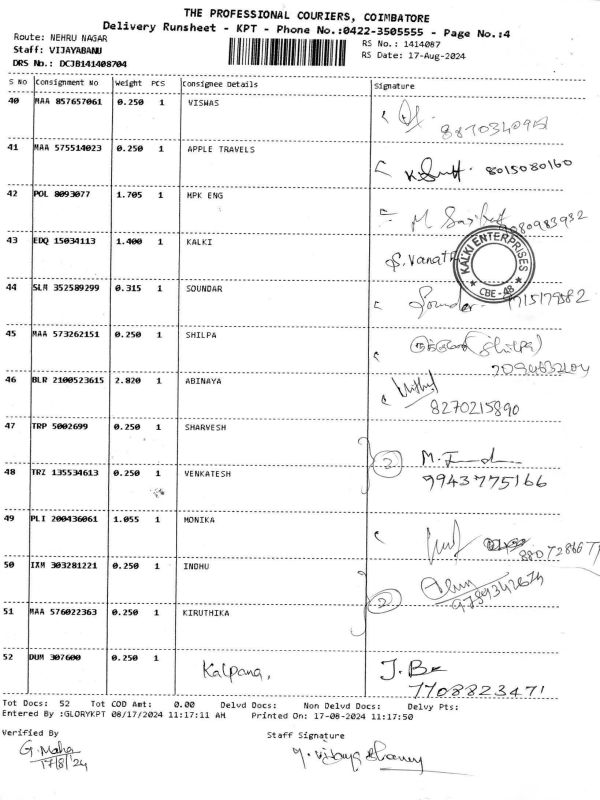 THE PROFESSIONAL COURIERS, COIMBATORE
Delivery Runsheet - KPT - Phone No.:0422-3505555 - Page No.:4
Route: NEHRU NAGAR
RS No.: 1414087
Staff: VIJAYABANU
RS Date: 17-Aug-2024
DRS No.: DCJB141408704
S No Consignment No Weight PCS Consignee Details Signature
40 MAA 857657061 0.250 1 VISWAS
41 MAA 575514023 0.250 1 APPLE TRAVELS
8015080160
42 POL 8093077 1.705 1 MPK ENG
9080983932
43 EDQ 15034113 1.400 1 KALKI
S. Vanath
KALKI ENTERPRISES
CBE - 48
44 SLM 352589299 0.315 1 SOUNDAR
Soundar
45 MAA 573262151 0.250 1 SHILPA
(Shilpa)
46 BLR 2100523615 2.820 1 ABINAYA
8270215890
47 TRP 5002699 0.250 1 SHARVESH
2
9943775166
48 TRZ 135534613 0.250 1 VENKATESH
49 PLI 200436061 1.055 1 MONIKA
50 IXM 303281221 0.250 1 INDHU
2
51 MAA 576022363 0.250 1 KIRUTHIKA
52 DUM 307600 0.250 1 Kalpana,
7708823471
Tot Docs: 52 Tot COD Amt: 0.00 Delvd Docs: Non Delvd Docs: Delvy Pts:
Entered By :GLORYKPT 08/17/2024 11:17:11 AM Printed On: 17-08-2024 11:17:50
Verified By
Staff Signature
G. Maha
17/8/24